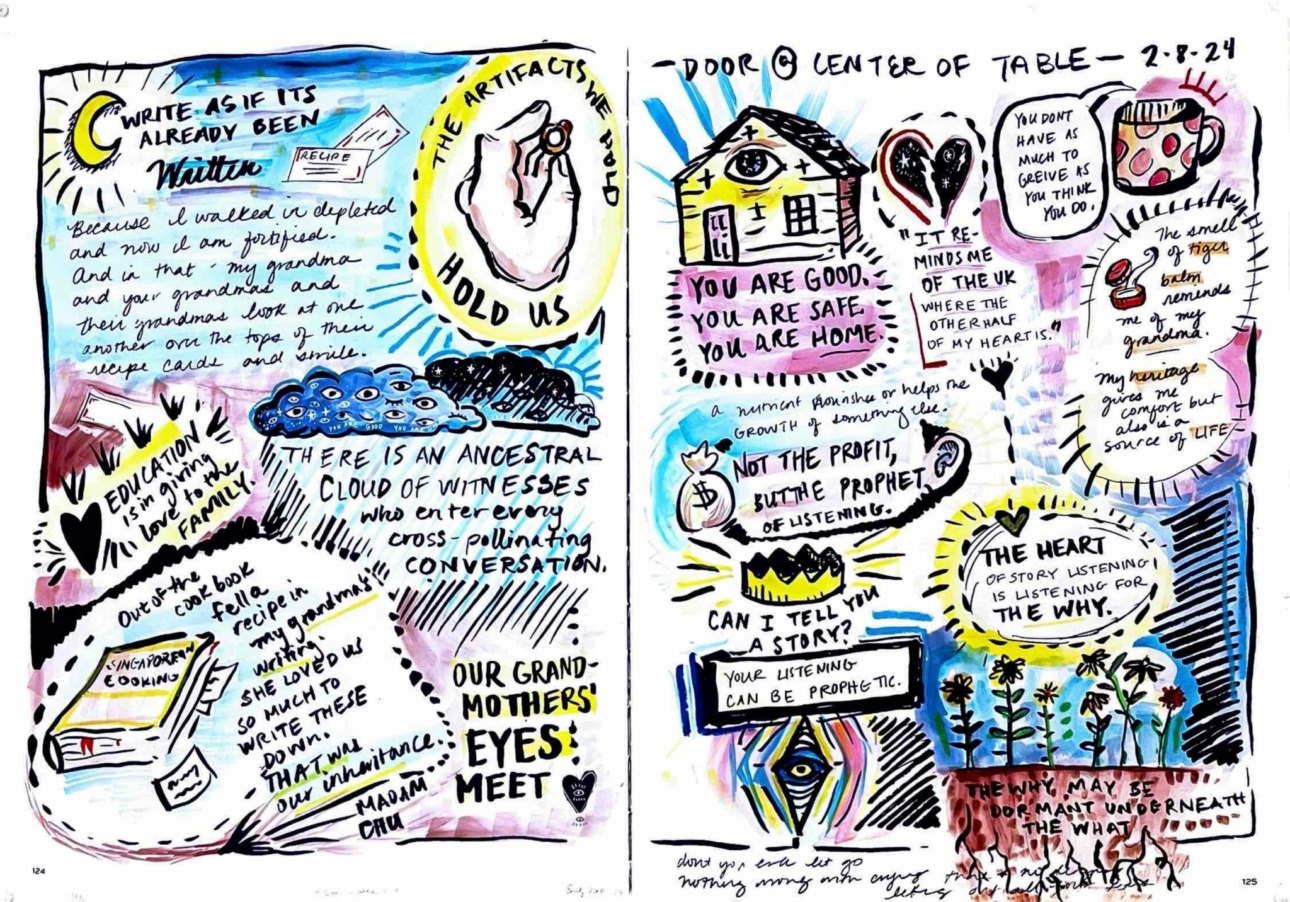 WRITE AS IF ITS
ALREADY BEEN
Written
RECIPE
Because I walked in depleted
and now I am fortified.
And in that - my grandma
and your grandmas and
their grandmas look at one
another over the tops of their
recipe cards and smile.
THE ARTIFACTS WE HOLD
HOLD US
EDUCATION
is in giving
love to the
FAMILY.
YOU ARE GOOD YOU ARE
THERE IS AN ANCESTRAL
CLOUD OF WITNESSES
who enter every
cross-pollinating
CONVERSATION.
Out of the
cookbook
fell a
recipe in
my grandmas
writing.
SHE LOVED US
SO MUCH TO
WRITE THESE
DOWN.
THAT WAS
our inheritance.
MADAM
CHU
SINGAPOREAN
COOKING
OUR GRAND-
MOTHERS'
EYES
MEET
124
- DOOR @ CENTER OF TABLE - 2-8-24
YOU ARE GOOD.
YOU ARE SAFE.
YOU ARE HOME.
"IT RE-
MINDS ME
OF THE UK
WHERE THE
OTHER HALF
OF MY HEART IS."
YOU DONT
HAVE AS
MUCH TO
GREIVE AS
YOU THINK
YOU DO.
The smell
of tiger
balm
reminds
me of my
grandma.
My heritage
gives me
comfort but
also is a
source of LIFE
a nutrient nourishes or helps the
GROWTH of something else.
NOT THE PROFIT,
BUT THE PROPHET
OF LISTENING.
$
CAN I TELL YOU
A STORY?
YOUR LISTENING
CAN BE PROPHETIC.
THE HEART
OF STORY LISTENING
IS LISTENING FOR
THE WHY.
THE WHY MAY BE
DORMANT UNDERNEATH
THE WHAT
let go
nothing
125